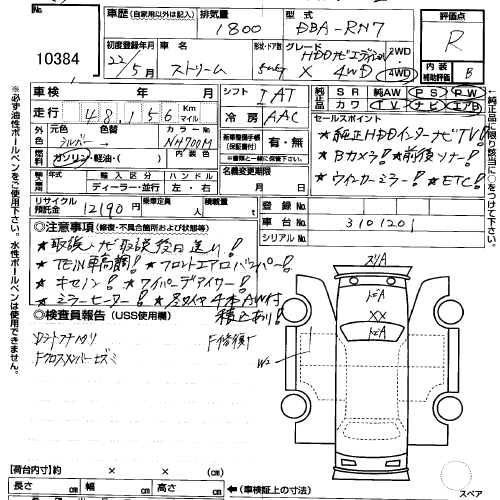 No.
10384
車歴 (自家用以外は記入) 排気量 型式
1800 DBA-RN7
初度登録年月 車名 形状・ドア数 グレード
22/5月 ストリーム 5 X HDDナビエディション 2WD 4WD 4WD
評価点
R
内装 補助評価 B
車検 年 月
シフト I AT
純正品 純AW PS PW
カワ TV ナビ エアB
走行 48,156 Km マイル
冷房 AAC
セールスポイント
外色 元色 色替 カラーNo.
シルバー NH700M
新車整備手帳 (保証書付) 有・無
※一緒にご提出下さい。
★純正HDDインターナビTV!
★Bカメラ! ★前後ソナー!
★ウインカーミラー! ★ETC!
燃料 ガソリン・軽油・( )
名義変更期限
月 日
輸入車 輸入区分 ハンドル
ディーラー・並行 左・右
リサイクル預託金 12190円 乗車定員 人 積載量 t
車台No. 3101201
シリアルNo.
◎注意事項 (修復・不具合箇所および状態等)
★取説、ナビ取説後日送り!
★TEIN車高調! ★フロントエアロバンパー!
★キセノン! ★ワイパーデアイサー!
★ミラーヒーター! ★冬タイヤ4本AW付
積込あり!
◎検査員報告 (USS使用欄)
F修復
W2
スリA
XX
スペア
【荷台内寸】約 × × (cm)
長さ cm 幅 cm 高さ cm ←(車検証上の寸法)
※必ず油性ボールペンをご使用下さい。水性ボールペンは使用できません。